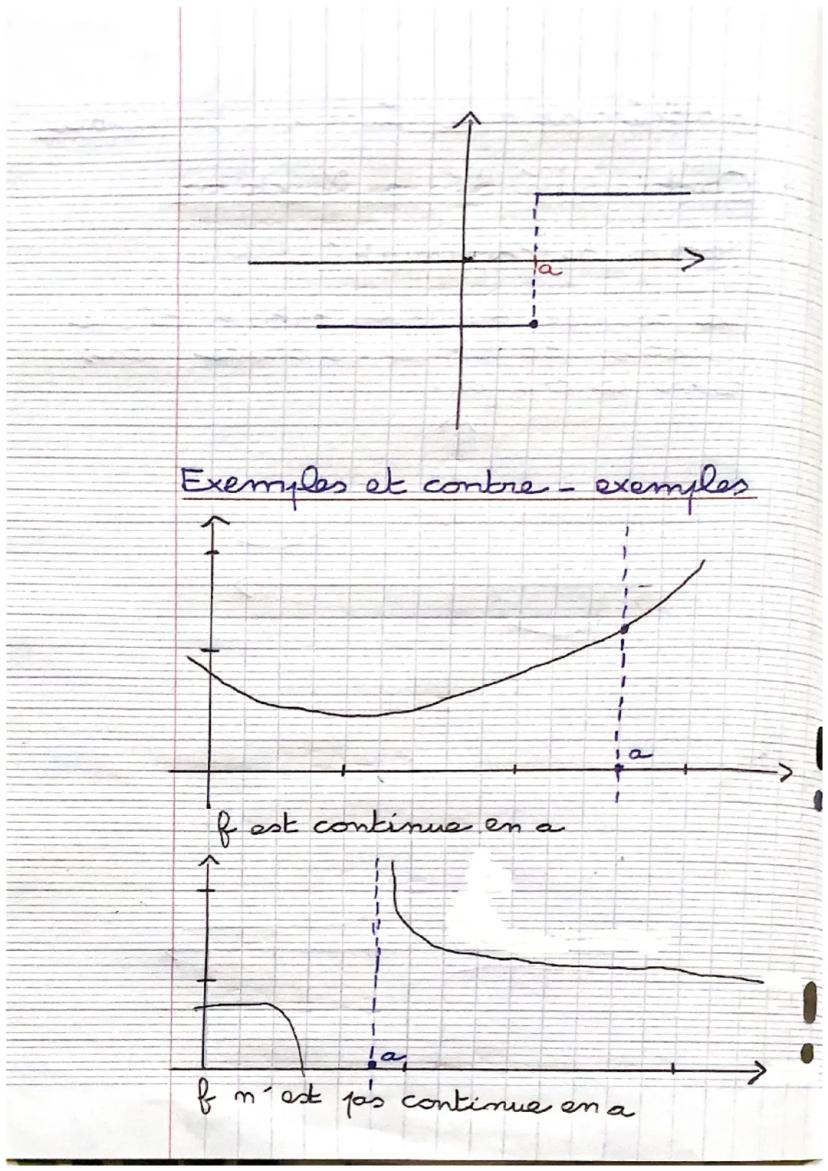 a
Exemples et contre - exemples
a
f est continue en a
a
f n'est pas continue en a